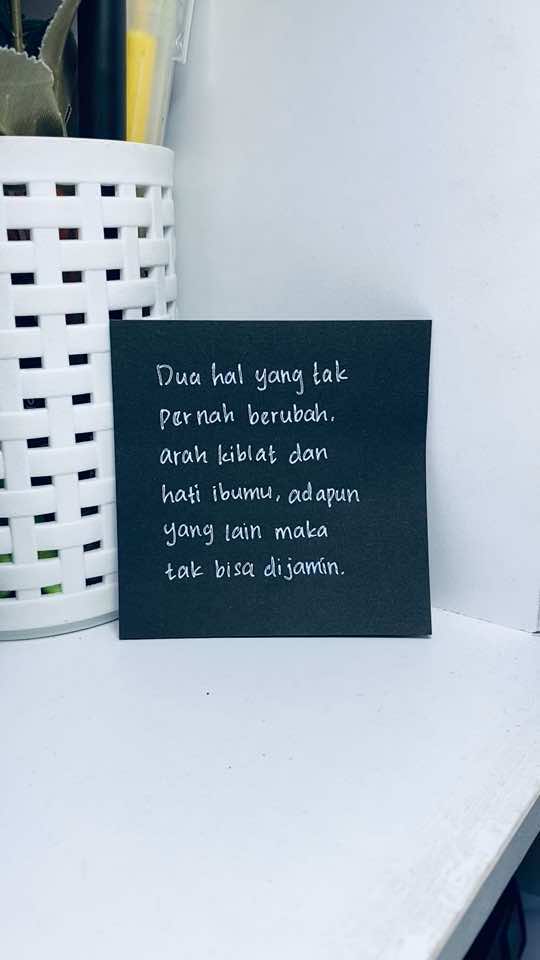 Dua hal yang tak
pernah berubah.
arah kiblat dan
hati ibumu, adapun
yang lain maka
tak bisa dijamin.